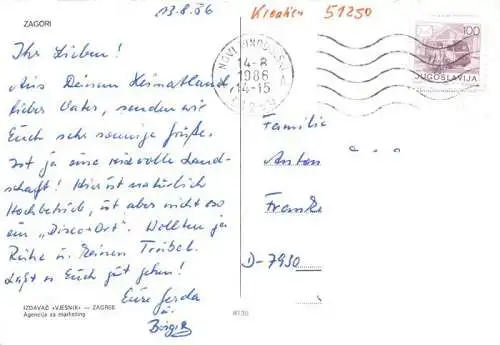 ZAGORI
13.8.86
Kroatien 51250
100
JUGOSLAVIJA
NOVI VINODOLSKI
14-8
1986
14-15
Ihr Lieben!
Aus Deinem Heimatland,
lieber Vater, senden wir
Euch sehr sonnige Grüße.
Ist ja eine reizvolle Land-
schaft! Hier ist natürlich
Hochbetrieb, ist aber nicht so
ein „Disco-Ort". Wollten ja
Ruhe u. keinen Trubel.
Laßt es Euch gut gehen!
Eure Gerda
u.
Birgit
Familie
Anton
Frank
D-7930
IZDAVAČ «VJESNIK» — ZAGREB
Agencija za marketing
8130